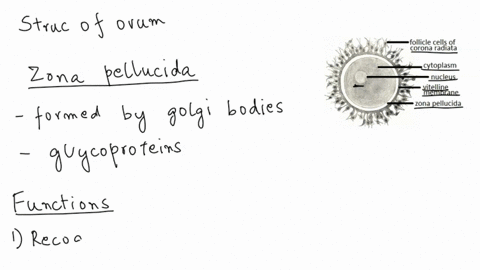 Struc of ovum
Zona pellucida
- formed by golgi bodies
- glycoproteins
Functions
1) Recog
follicle cells of
corona radiata
cytoplasm
nucleus
vitelline
membrane
zona pellucida